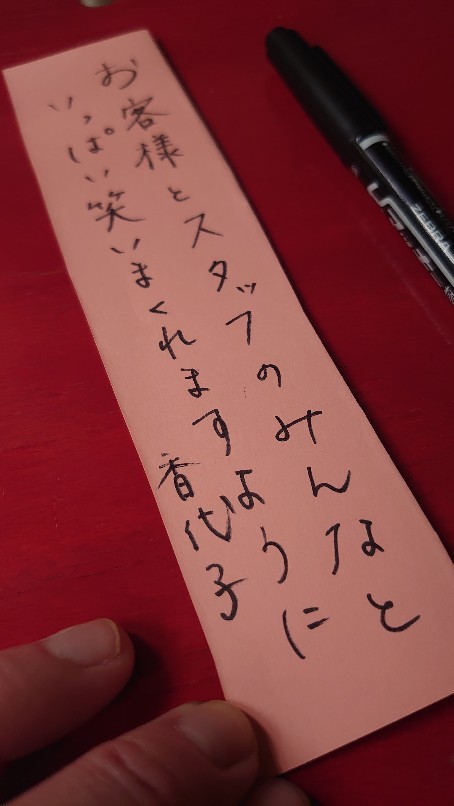 お客様とスタッフのみんなと
いっぱい笑いまくれますように
香代子
ZEBRA